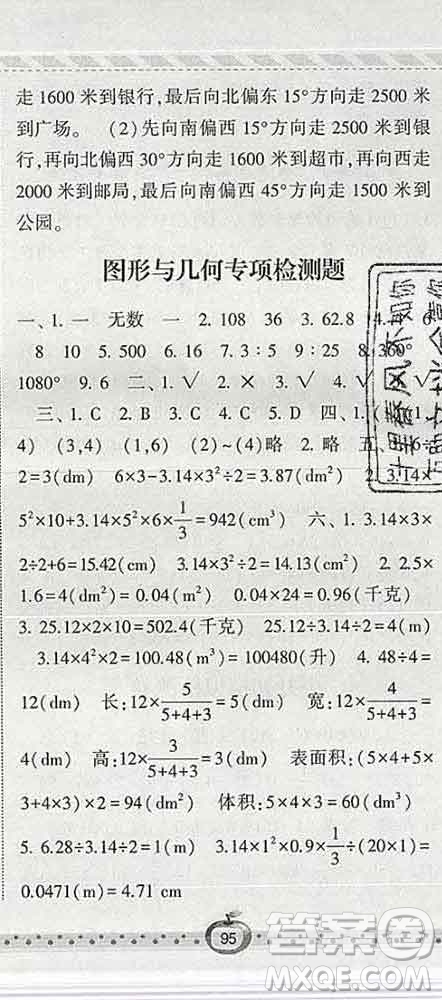 走 1600 米到银行,最后向北偏东 15°方向走 2500 米
到广场。 (2)先向南偏西 15°方向走 2500 米到银
行,再向北偏西 30°方向走 1600 米到超市,再向西走
2000 米到邮局,最后向南偏西 45°方向走 1500 米到
公园。
图形与几何专项检测题
一、1. 一 无数 一 2. 108 36 3. 62.8 4. 4 6
8 10 5. 500 6. 16 7. 3∶5 9∶25 8. 360°
1080° 9. 6 二、1. √ 2. × 3. √ 4. √
三、1. C 2. B 3. C 4. C 5. D 四、1. (
4) (3,4) (1,6) (2)~(4)略 2. 略 五、
2=3(dm) 6×3-3.14×3²÷2=3.87(dm²) 2. 3.14×
5²×10+3.14×5²×6×1/3=942(cm³) 六、1. 3.14×3×
2÷2+6=15.42(cm) 3.14×3²÷2=14.13(cm²) 2. 2.5×
1.6=4(dm²)=0.04(m²) 0.04×24=0.96(千克)
3. 25.12×2×10=502.4(千克) 25.12÷3.14÷2=4(m)
3.14×4²×2=100.48(m³)=100480(升) 4. 48÷4=
12(dm) 长:12×5/(5+4+3)=5(dm) 宽:12×4/(5+4+3)=
4(dm) 高:12×3/(5+4+3)=3(dm) 表面积:(5×4+5×
3+4×3)×2=94(dm²) 体积:5×4×3=60(dm³)
5. 6.28÷3.14÷2=1(m) 3.14×1²×0.9×1/3÷(20×1)=
0.0471(m)=4.71 cm
95
答案圈
MXQE.COM